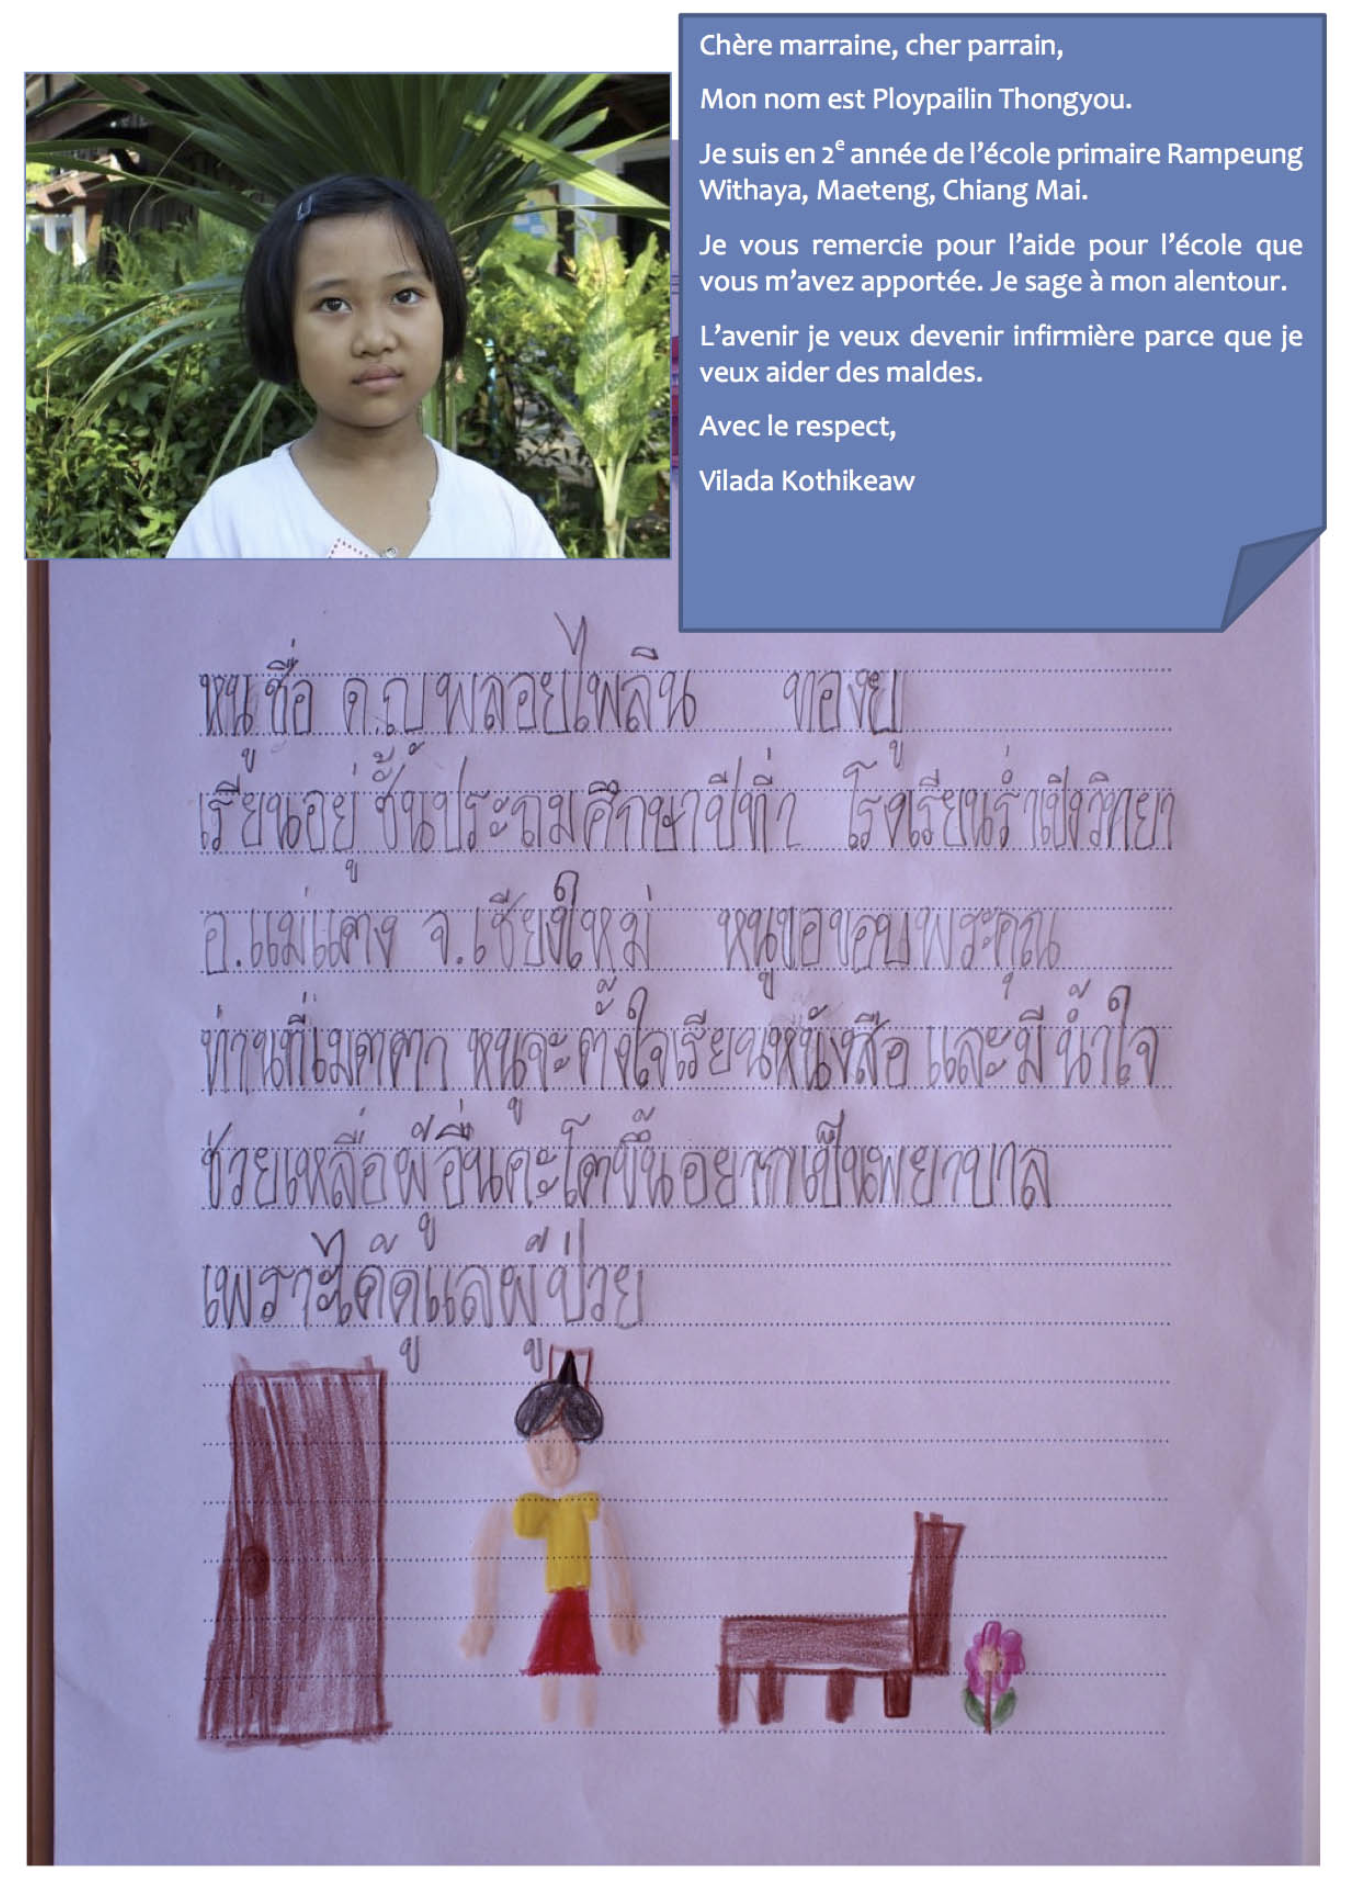 Chère marraine, cher parrain,
Mon nom est Ploypailin Thongyou.
Je suis en 2e année de l'école primaire Rampeung
Withaya, Maeteng, Chiang Mai.
Je vous remercie pour l'aide pour l'école que
vous m'avez apportée. Je sage à mon alentour.
L'avenir je veux devenir infirmière parce que je
veux aider des maldes.
Avec le respect,
Vilada Kothikeaw
หนูชื่อ ด.ญ พลอยไพลิน ทองยู
เรียนอยู่ ชั้นประถมศึกษาปีที่ โรงเรียนรำเปิงวิทยา
อ.แม่แตง จ.เชียงใหม่ หนูขอขอบพระคุณ
ท่านที่เมตตา หนูจะตั้งใจเรียนหนังสือ และมีน้ำใจ
ช่วยเหลือผู้อื่นคะโตขึ้นอยากเป็นพยาบาล
เพราะได้ดูแลผู้ป่วย